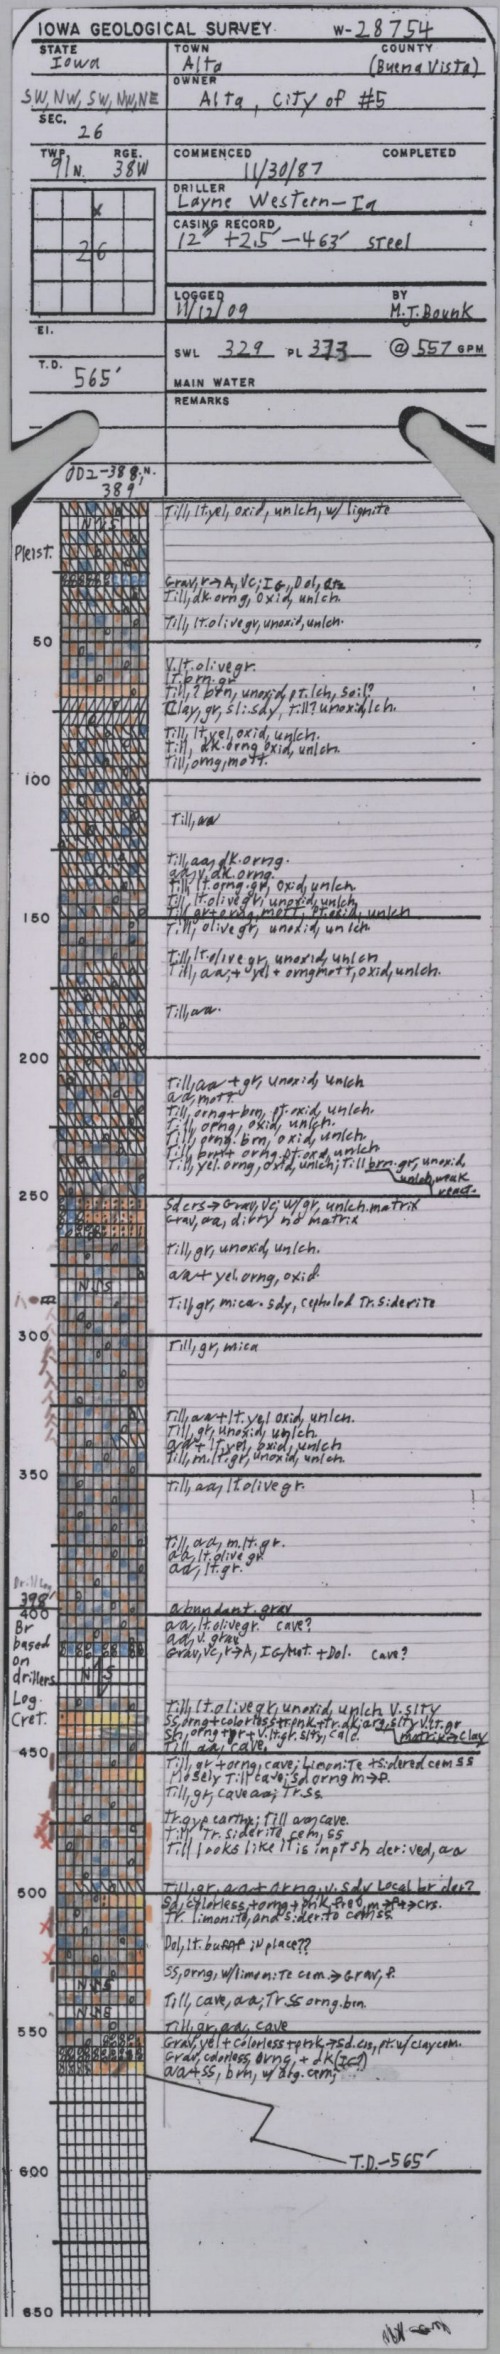 IOWA GEOLOGICAL SURVEY W-28754
STATE TOWN COUNTY
Iowa Alta (Buena Vista)
OWNER
SW, NW, SW, NW, NE Alta, City of #5
SEC.
26
TWP. RGE. COMMENCED COMPLETED
91N. 38W 11/30/87
DRILLER
Layne Western-Ia
x CASING RECORD
12" +2.5'-463' steel
26
LOGGED BY
11/12/09 M.J. Bounk
El.
SWL 329 PL 373 @ 557 GPM
T.D.
565'
MAIN WATER
REMARKS
389'
Till, lt.yel, oxid, unlch, w/ lignite
NS
Pleist.
Grav, r→A, vc; IG, Dol, Qtz
Till, dk.orng, oxid, unlch.
Till, lt.olive gr, unoxid, unlch.
50
V.lt.olive gr.
lt.brn.gr
Till, ? brn, unoxid, pt.lch, soil?
Clay, gr, sl.sdy, till? unoxid, lch.
Till, lt.yel, oxid, unlch.
Till, dk.orng oxid, unlch.
Till, orng, mott.
100
Till, aa
Till, aa, dk.orng.
aa, v.dk.orng.
Till, lt.orng.gr, oxid, unlch
Till, lt.olive gr, unoxid, unlch
Till, gr+orng, mott, pt.oxid, unlch
150
Till, olive gr, unoxid, unlch.
Till, lt.olive gr, unoxid, unlch
Till, aa, + yel + orng mott, oxid, unlch.
Till, aa.
200
Till, aa + gr, unoxid, unlch
aa, mott?
Till, orng+brn, pt.oxid, unlch.
Till, orng, oxid, unlch.
Till, orng.brn, oxid, unlch
Till, brn+ orng, pt.oxid, unlch
Till, yel.orng, oxid, unlch; Till brn.gr, unoxid,
unlch, weak
react.
250
Sd crs→Grav, vc; w/gr, unlch. matrix
Grav, aa, dirty no matrix
Till, gr, unoxid, unlch.
aa + yel.orng, oxid.
NS
Till, gr, mica. sdy, Tr. siderite
300
Till, gr, mica
Till, aa + lt.yel oxid, unlch.
Till, gr, unoxid, unlch.
aa + lt.yel, oxid, unlch
Till, m.lt.gr, unoxid, unlch.
350
Till, aa, lt.olive gr.
Till, aa, m.lt.gr.
aa, lt.olive gr.
aa, lt.gr.
398'
abundant grav
400
Br aa, lt.olive gr. cave?
based aa, v.grav
on Grav, vc, r→A, IG/Met. + Dol. cave?
drillers NS
Log.
Cret.
Till, lt.olive gr, unoxid, unlch v.slty
SS, orng+colorless+pnk+Tr.dk; arg, slty v.lt.gr
matrix→clay
Sh, orng+gr+v.lt.gr, slty, calc.
Till, aa, cave,
450
Till, gr + orng, cave; Limonite + sidered cem ss
Mosely Till cave; sd orng m→f.
Till, gr, cave aa; Tr.ss
Tr.gyp earthy; Till aa, cave.
Till, Tr. siderite cem, ss
Till looks like it is inpt sh derived, aa
500
Till, gr, aa + orng, v.sdy Local br der?
Sd, colorless+orng+pnk
Tr. limonite, and siderite cem ss
Dol, lt. in place??
SS, orng, w/limonite cem.→Grav, f.
NS
Till, cave, aa; Tr ss orng.brn.
NS
Till, gr, aa, cave
550
Grav, yel+colorless+pnk, →Sd.crs, pt.w/ clay cem.
Grav, colorless, orng, + dk (IG?)
aa + ss, brn, w/arg.cem;
T.D.-565'
600
650